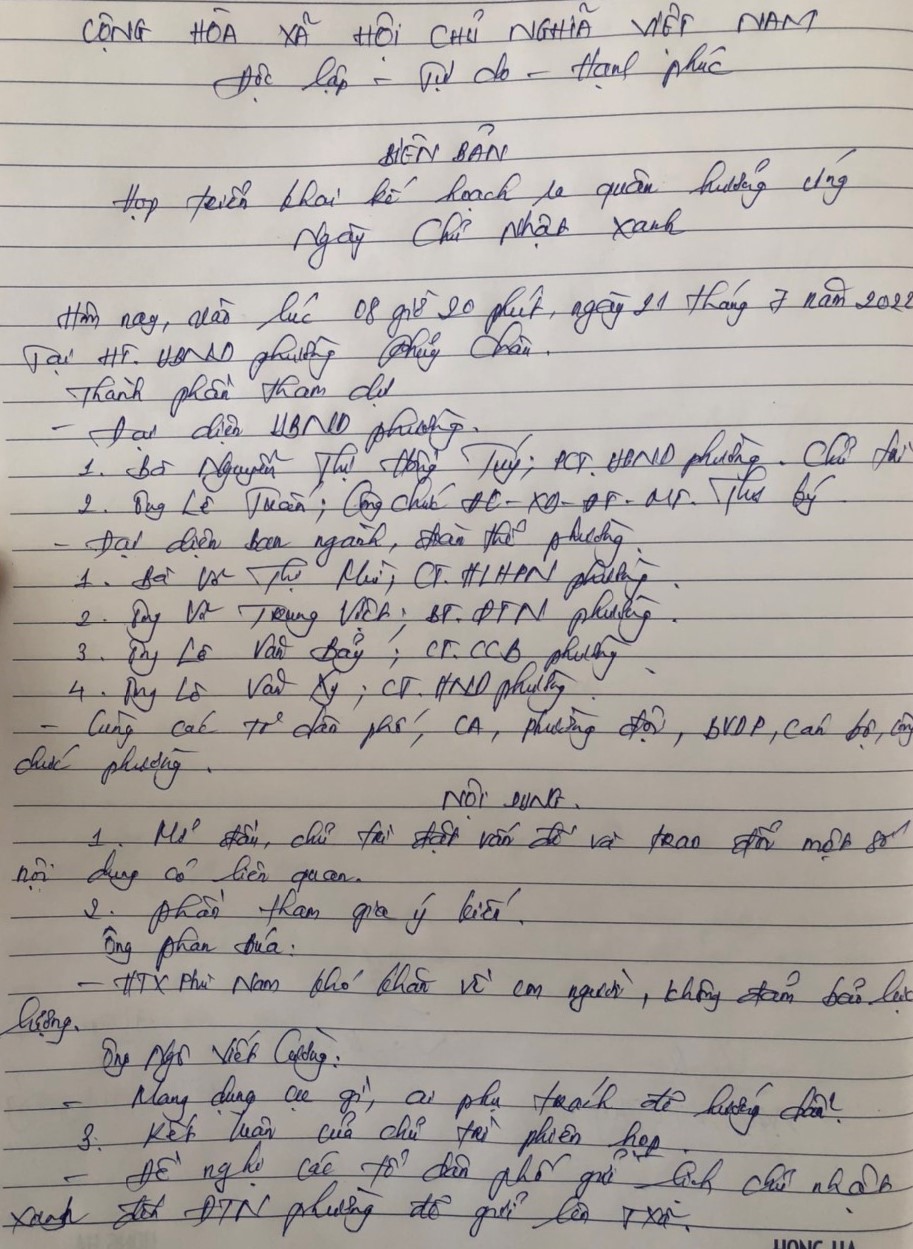 CỘNG HÒA XÃ HỘI CHỦ NGHĨA VIỆT NAM
Độc lập - Tự do - Hạnh phúc
BIÊN BẢN
Họp triển khai kế hoạch ra quân hưởng ứng
Ngày Chủ Nhật xanh
Hôm nay, vào lúc 08 giờ 20 phút, ngày 21 tháng 7 năm 2022
Tại HT. UBND phường Phú
Thành phần tham dự
- Đại diện UBND phường.
1. Bà Nguyễn Thị Hồng Túy; PCT. UBND phường. Chủ trì
2. Ông Lê Tuấn; Công chức ĐC-XD-ĐT-MT. Thư ký
- Đại diện ban ngành, đoàn thể phường.
1. Bà Võ Thị CT. HLHPN phường.
2. Ông Võ Trung Việt; BT. ĐTN phường.
3. Ông Lê Văn Bảy; CT. CCB phường
4. Ông Lê Văn Kỳ; CT. HND phường.
- Cùng các tổ dân phố, CA, phường đội, BVDP, cán bộ, công
chức phường.
NỘI DUNG.
1. Mở đầu, chủ trì đặt vấn đề và trao đổi một số
nội dung có liên quan.
2. phần tham gia ý kiến.
Ông phan
- HTX Phú Nam khó khăn về con người, không đảm bảo lực
lượng.
Ông Ngô Viết Cường:
- Mang dụng cụ gì, ai phụ trách để hướng dẫn?
3. Kết luận của chủ trì phiên họp
- Đề nghị các tổ dân phố gửi lịch chủ nhật
xanh đến ĐTN phường để gửi lên TXã.
HONG HA